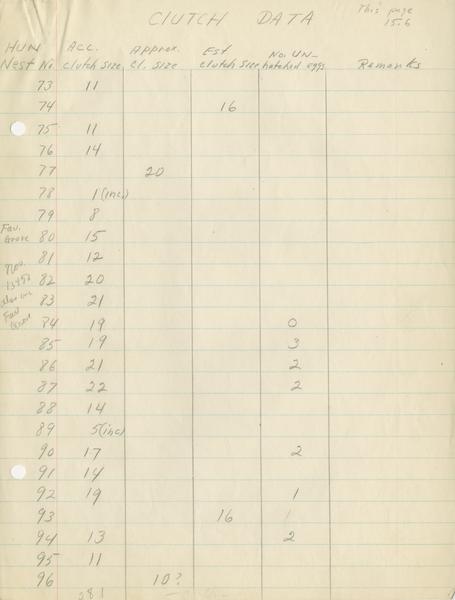 CLUTCH DATA
This page
15.6
HUN Nest No. Acc. Clutch Size Approx. Cl. Size Est Clutch Size No. Un-hatched eggs Remarks
73 11
74 16
75 11
76 14
77 20
78 1 (inc.)
79 8
Fav. Grove 80 15
81 12
Nov.
82 20
83 21
Fav Grove
84 19 0
85 19 3
86 21 2
87 22 2
88 14
89 5 (inc)
90 17 2
91 14
92 19 1
93 16 1
94 13 2
95 11
96 10?
281